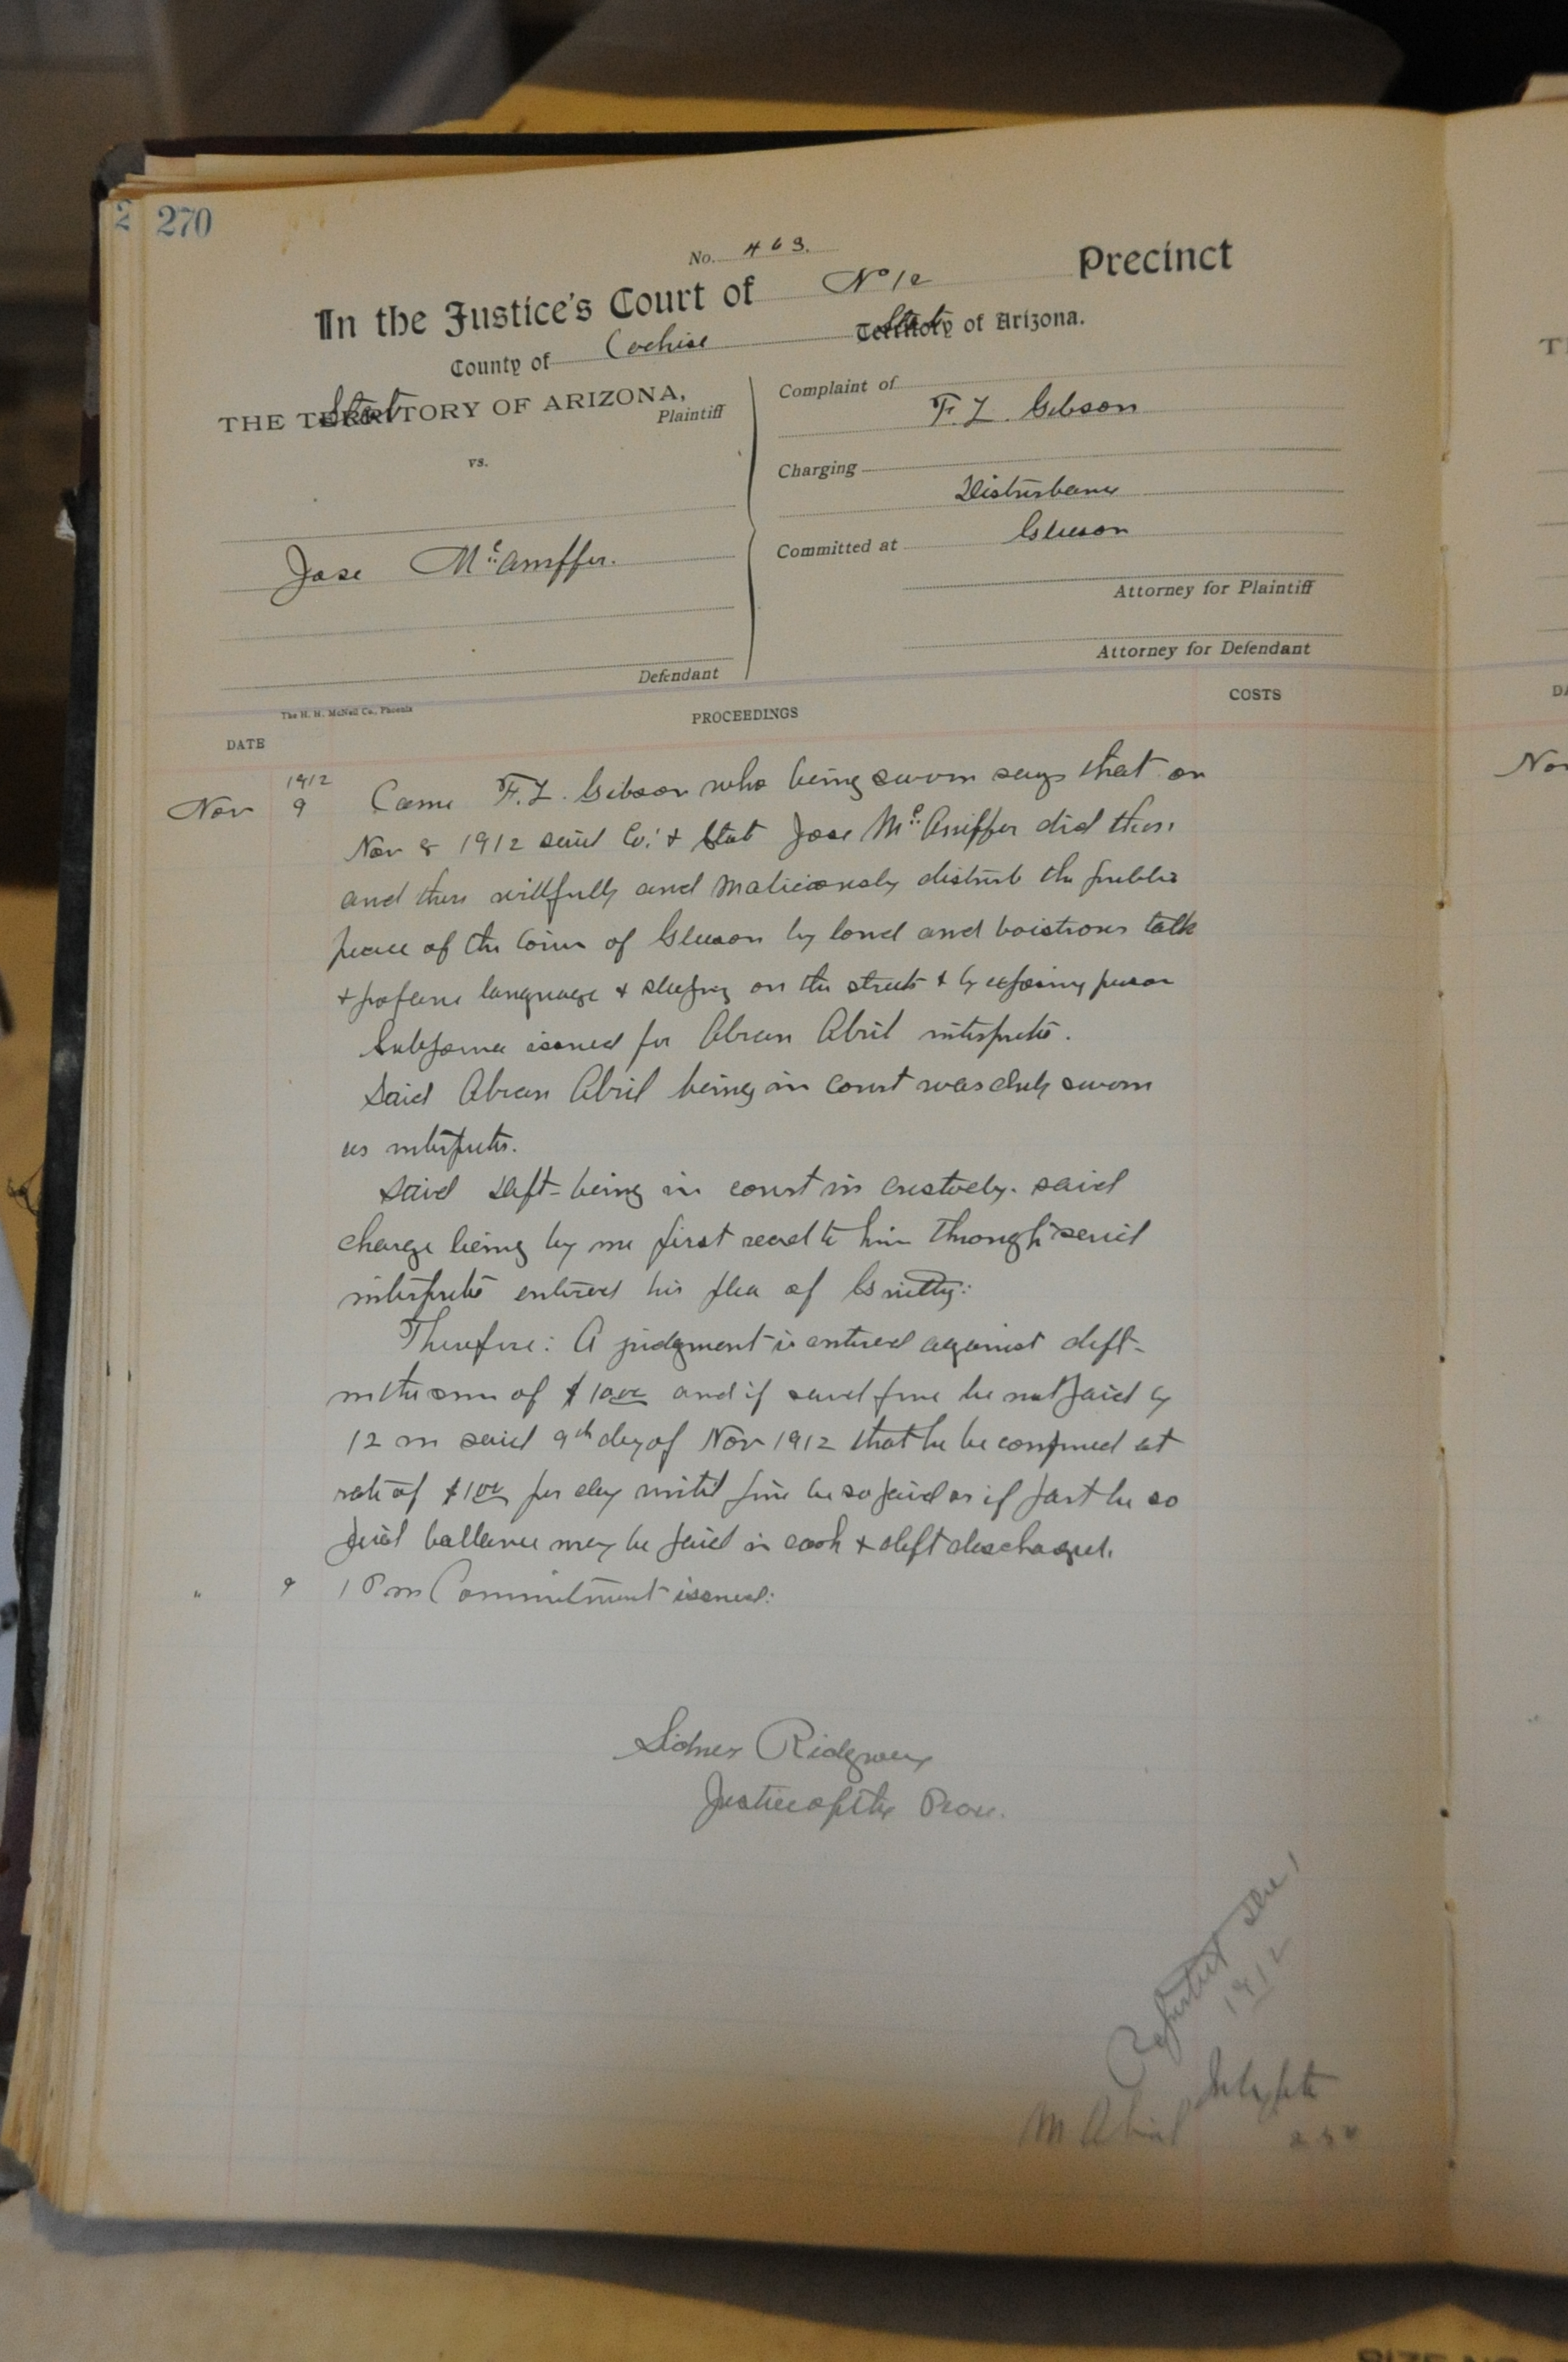 2 270
No. 463.
In the Justice's Court of No 12 Precinct
County of Cochise State Territory of Arizona.
THE TERRITORY State OF ARIZONA,
Plaintiff
vs.
Jose
Defendant
Complaint of
F. L. Gibson
Charging
Disturbance
Committed at Gleeson
Attorney for Plaintiff
Attorney for Defendant
The H. H. McNeil Co., Phoenix
DATE PROCEEDINGS COSTS
1912
Nov 9 Came F. L. Gibson who being sworn says that on
Nov 8 1912 said Co. & State Jose did then
and there willfully and maliciously disturb the public
peace of the town of Gleeson by loud and boistrous talk
& profane language & sleeping on the streets & by exposing person
Subpoena issued for Abran Abril interpreter.
Said Abran Abril being in court was duly sworn
as interpreter.
Said Deft- being in court in custody. said
charge being by me first read to him through said
interpreter entered his plea of Guilty:
Therefore: A judgment is entered against deft-
in the sum of $10.00 and if said fine be not paid by
12 m said 9th day of Nov 1912 that he be confined at
rate of $1.00 per day until fine be so paid or if part be so
paid ballance may be paid in cash & deft discharged.
" 9 1 Pm Commitment issued:
Sidney Ridgway
Justice of the Peace.
Reported Dec 1
1912
Interpreter
M Abril 2.50
Nov